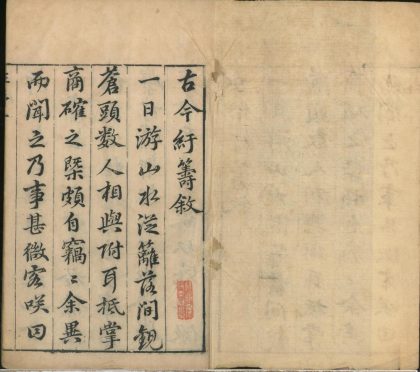 古今紆籌敘
一日游山水從籬落間覩
蒼頭數人相與附耳抵掌
商確之槩頗自竊〻余異
而聞之乃事甚微客咲曰